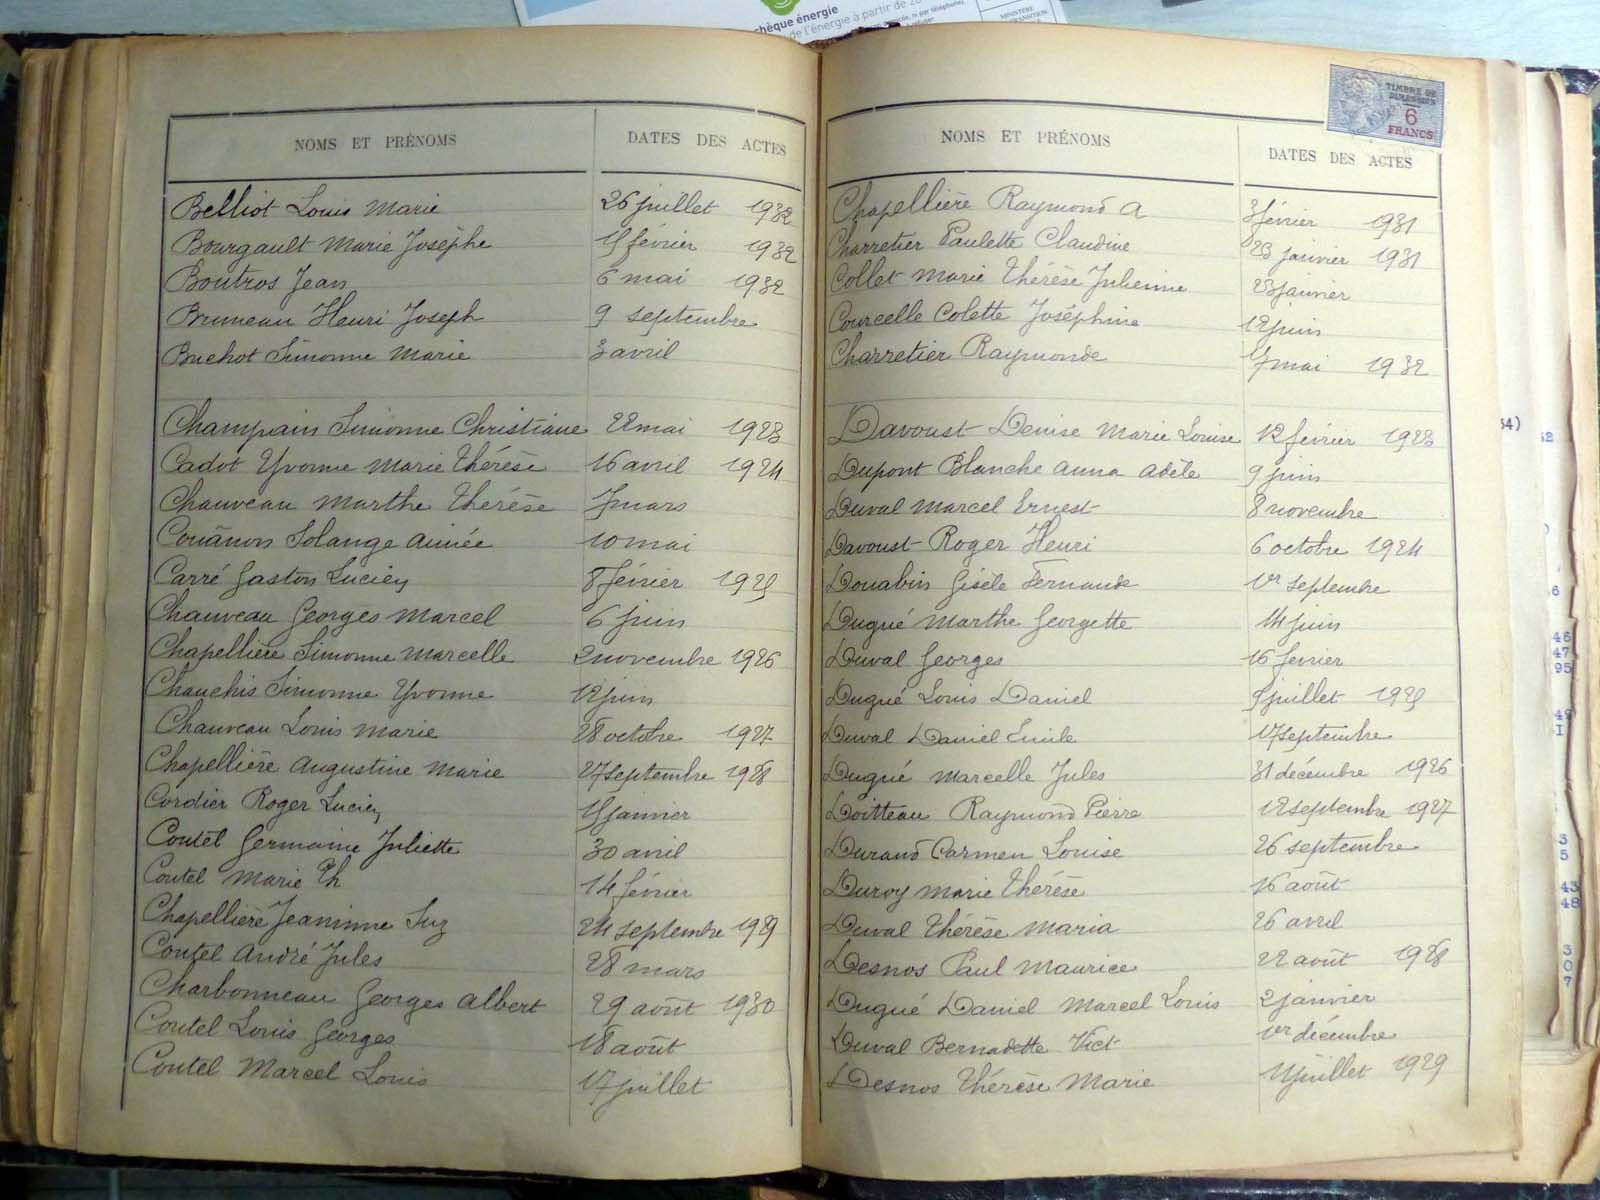 chèque énergie
de l'énergie à partir de 20
MINISTÈRE
NOMS ET PRÉNOMS DATES DES ACTES
Belliot Louis Marie 26 juillet 1932
Bourgault Marie Josèphe février 1932
Boutros Jean 6 mai 1932
Bruneau Henri Joseph 9 septembre
Buchot Simonne Marie 3 avril
Champain Simonne Christiane 22 mai 1923
Cadot Yvonne Marie Thérèse 16 avril 1924
Chauveau Marthe Thérèse 7 mars
Couânon Solange Aimée 10 mai
Carré Gaston Lucien 8 février 1925
Chauveau Georges Marcel 6 juin
Chapellière Simonne Marcelle 2 novembre 1926
Chauchis Simonne Yvonne 12 juin
Chauveau Louis Marie 28 octobre 1927
Chapellière Augustine Marie 27 septembre 1928
Cordier Roger Lucien janvier
Coutel Germaine Juliette 30 avril
Coutel Marie Th 14 février
Chapellière Jeaninne Suz 24 septembre 1929
Coutel André Jules 28 mars
Charbonneau Georges Albert 29 août 1930
Coutel Louis Georges 18 août
Coutel Marcel Louis 17 juillet
TIMBRE DE
DIMENSION
6
FRANCS
NOMS ET PRÉNOMS DATES DES ACTES
Chapellière Raymond A 3 février 1931
Charretier Paulette Claudine 23 janvier 1931
Collet Marie Thérèse Julienne 23 janvier
Courcelle Colette Joséphine 12 juin
Charretier Raymonde 7 mai 1932
Davoust Denise Marie Louise 12 février 1923
Dupont Blanche Anna Adèle 9 juin
Duval Marcel Ernest 8 novembre
Davoust Roger Henri 6 octobre 1924
Douabin Gisèle Fernande 1er septembre
Dugué Marthe Georgette 14 juin
Duval Georges 16 février
Dugué Louis Daniel juillet 1925
Duval Daniel Emile 17 septembre
Dugué Marcelle Jules 31 décembre 1926
Doitteau Raymond Pierre 12 septembre 1927
Durand Carmen Louise 26 septembre
Duroy Marie Thérèse 16 août
Duval Thérèse Maria 26 avril
Desnos Paul Maurice 22 août 1928
Dugué Daniel Marcel Louis 2 janvier
Duval Bernadette Vict 1er décembre
Desnos Thérèse Marie juillet 1929